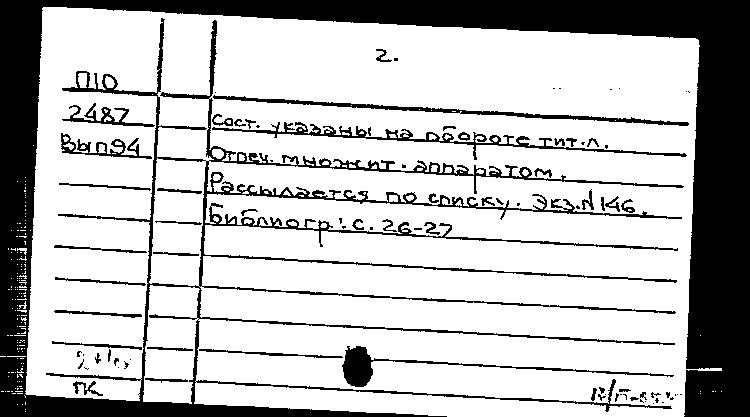 2.
П10
2487
Вып94
Сост. указаны на обороте тит.л.
Отпеч. множит. аппаратом.
Рассылается по списку. Экз.N146.
Библиогр.: с. 26-27
ПК